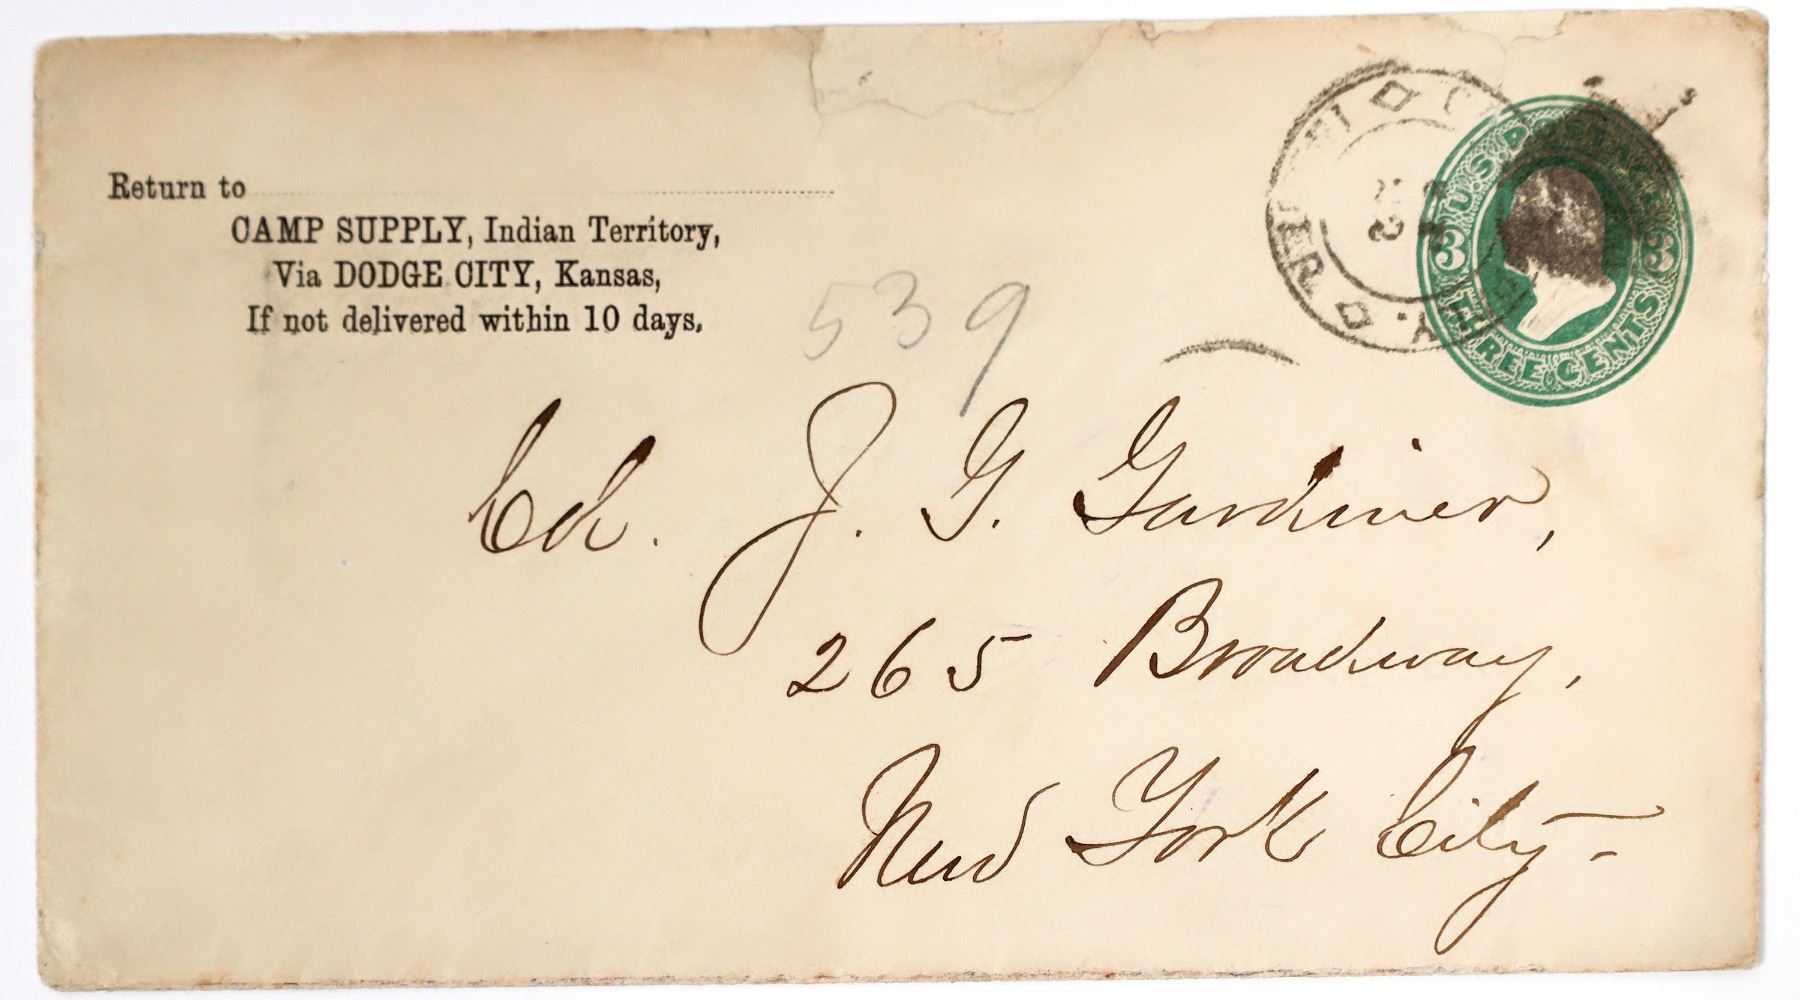 Return to
CAMP SUPPLY, Indian Territory,
Via DODGE CITY, Kansas,
If not delivered within 10 days.
U.S. POSTAGE
3 3
THREE CENTS
539
Col. J. G. Gardiner,
265 Broadway,
New York City-